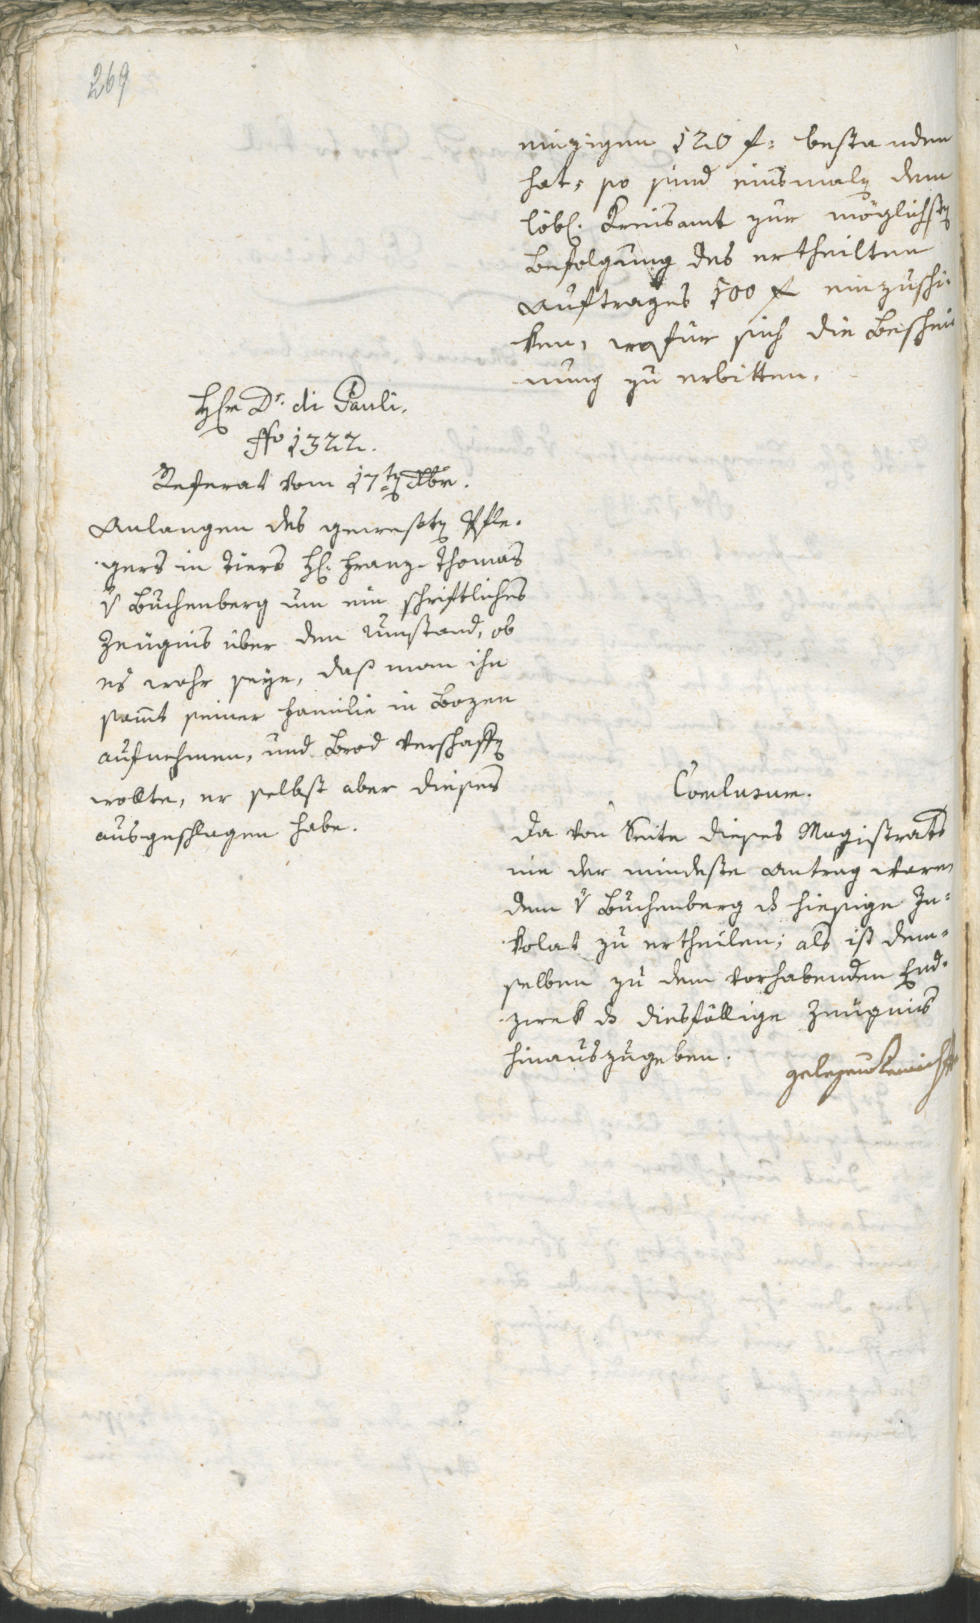 269
einzigen 120 f: bestanden
hat, so sind einsmalen dem
löbl. Kreisamt zur möglichsten
Befolgung des ertheilten
Auftrages 100 f einzuschi-
ken, wofür sich die Beschei-
nung zu erbitten.
Hhr Dr. di Pauli.
No 1322.
Referat vom 17ten Xbr.
Anlangen des gewesten Pfle-
gers in Tiers H. Franz Thomas
v Buchenberg um ein schriftliches
Zeugnis über den Umstand, ob
es wahr seye, daß man ihn
samt seiner Familie in Bozen
aufnehmen, und Brod verschaffen
wollte, er selbst aber dieses
ausgeschlagen habe.
Conclusum.
Da von Seite dieses Magistrats
nie der mindeste Antrag ware
dem v Buchenberg ds hiesige In-
kolat zu ertheilen; als ist dem-
selben zu dem vorhabenden End-
zwek ds diesfällige Zeugnis
hinauszugeben.
gelesen